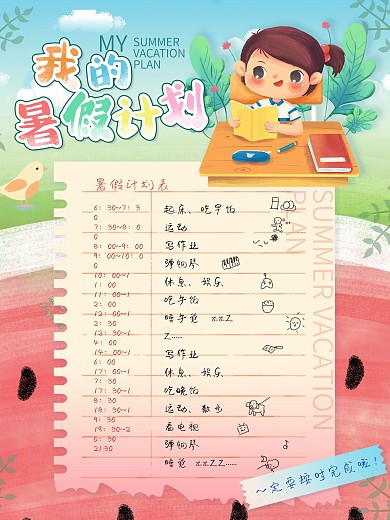 MY SUMMER
VACATION
PLAN
我的
暑假计划
暑假计划表
6:30~7:3
0
起床、吃早饭
7:30~8:0
0
运动
8:00~9:00
写作业
9:00~10:0
0
弹钢琴
10:00~1
1:00
休息、娱乐
11:00~1
2:00
吃午饭
12:00~1
2:30
睡午觉 zzZ
12:30~1
4:00
Z......
14:00~1
6:00
写作业
17:00~1
7:30
休息、娱乐
17:00~1
8:30
吃晚饭
18:30~1
9:30
运动、散步
19:30~2
0:30
看电视
21:30
弹钢琴
睡觉 zzZZZ......
SUMMER VACATION
PLAN
~定要按时完成哦!